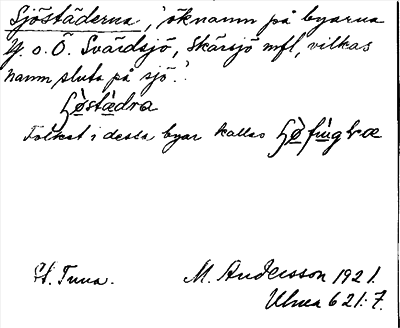 Sjöstäderna, 'öknamn på byarna
Y. o. Ö. Svärdsjö, Skärsjö mfl, vilkas
namn sluta på sjö'.
Folket i dessa byar kallas
St. Tuna. M. Andersson 1921.
Ulma 621:7.